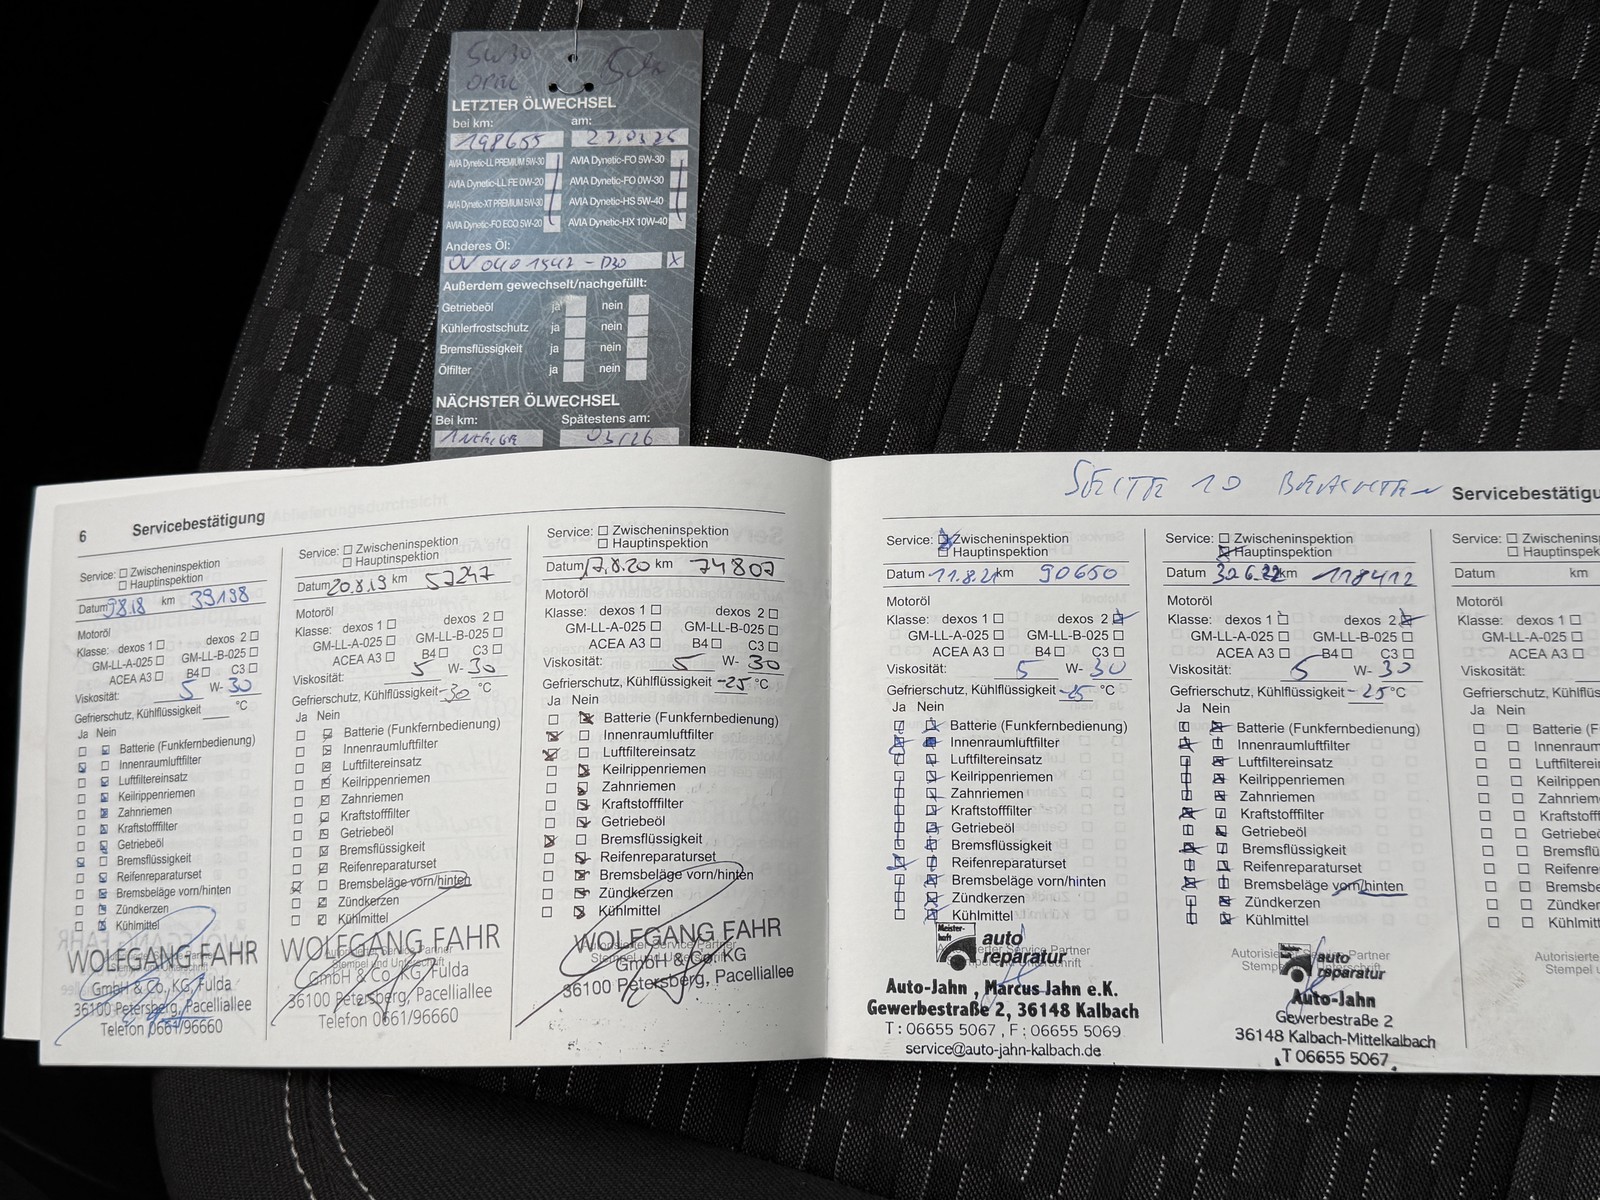 5W30
OPEL
LETZTER ÖLWECHSEL
bei km: am:
198655 27.03.25
AVIA Dynetic-LL PREMIUM 5W-30 AVIA Dynetic-FO 5W-30
AVIA Dynetic-LL FE 0W-20 AVIA Dynetic-FO 0W-30
AVIA Dynetic-XT PREMIUM 5W-30 AVIA Dynetic-HS 5W-40
AVIA Dynetic-FO ECO 5W-20 AVIA Dynetic-HX 10W-40
Anderes Öl:
OV 040 1547 - D30 X
Außerdem gewechselt/nachgefüllt:
Getriebeöl ja nein
Kühlerfrostschutz ja nein
Bremsflüssigkeit ja nein
Ölfilter ja nein
NÄCHSTER ÖLWECHSEL
Bei km: Spätestens am:
03/26
6 Servicebestätigung
Service: Zwischeninspektion
Hauptinspektion
Datum 9.8.18 km 39198
Motoröl
Klasse: dexos 1 dexos 2
GM-LL-A-025 GM-LL-B-025
ACEA A3 B4 C3
Viskosität: 5 W- 30
Gefrierschutz, Kühlflüssigkeit °C
Ja Nein
Batterie (Funkfernbedienung)
Innenraumluftfilter
Luftfiltereinsatz
Keilrippenriemen
Zahnriemen
Kraftstofffilter
Getriebeöl
Bremsflüssigkeit
Reifenreparaturset
Bremsbeläge vorn/hinten
Zündkerzen
Kühlmittel
WOLFGANG FAHR
GmbH & Co. KG, Fulda
36100 Petersberg, Pacelliallee
Telefon 0661/96660
Service: Zwischeninspektion
Hauptinspektion
Datum 20.8.19 km 57247
Motoröl
Klasse: dexos 1 dexos 2
GM-LL-A-025 GM-LL-B-025
ACEA A3 B4 C3
Viskosität: 5 W- 30
Gefrierschutz, Kühlflüssigkeit -30 °C
Ja Nein
Batterie (Funkfernbedienung)
Innenraumluftfilter
Luftfiltereinsatz
Keilrippenriemen
Zahnriemen
Kraftstofffilter
Getriebeöl
Bremsflüssigkeit
Reifenreparaturset
Bremsbeläge vorn/hinten
Zündkerzen
Kühlmittel
Autorisierter Service Partner
Stempel und Unterschrift
WOLFGANG FAHR
GmbH & Co. KG, Fulda
36100 Petersberg, Pacelliallee
Telefon 0661/96660
Service: Zwischeninspektion
Hauptinspektion
Datum 17.8.20 km 74807
Motoröl
Klasse: dexos 1 dexos 2
GM-LL-A-025 GM-LL-B-025
ACEA A3 B4 C3
Viskosität: 5 W- 30
Gefrierschutz, Kühlflüssigkeit -25 °C
Ja Nein
Batterie (Funkfernbedienung)
Innenraumluftfilter
Luftfiltereinsatz
Keilrippenriemen
Zahnriemen
Kraftstofffilter
Getriebeöl
Bremsflüssigkeit
Reifenreparaturset
Bremsbeläge vorn/hinten
Zündkerzen
Kühlmittel
Autorisierter Service Partner
WOLFGANG FAHR
GmbH & Co. KG
36100 Petersberg, Pacelliallee
SEITE 10 BEACHTEN Servicebestätigu
Service: Zwischeninspektion
Hauptinspektion
Datum 11.8.21 km 90650
Motoröl
Klasse: dexos 1 dexos 2
GM-LL-A-025 GM-LL-B-025
ACEA A3 B4 C3
Viskosität: 5 W- 30
Gefrierschutz, Kühlflüssigkeit -25 °C
Ja Nein
Batterie (Funkfernbedienung)
Innenraumluftfilter
Luftfiltereinsatz
Keilrippenriemen
Zahnriemen
Kraftstofffilter
Getriebeöl
Bremsflüssigkeit
Reifenreparaturset
Bremsbeläge vorn/hinten
Zündkerzen
Kühlmittel
Meister-
haft
auto
reparatur
Auto-Jahn , Marcus Jahn e.K.
Gewerbestraße 2, 36148 Kalbach
T : 06655 5067 , F : 06655 5069
service@auto-jahn-kalbach.de
Service: Zwischeninspektion
Hauptinspektion
Datum 30.6.22 km 118412
Motoröl
Klasse: dexos 1 dexos 2
GM-LL-A-025 GM-LL-B-025
ACEA A3 B4 C3
Viskosität: 5 W- 30
Gefrierschutz, Kühlflüssigkeit -25 °C
Ja Nein
Batterie (Funkfernbedienung)
Innenraumluftfilter
Luftfiltereinsatz
Keilrippenriemen
Zahnriemen
Kraftstofffilter
Getriebeöl
Bremsflüssigkeit
Reifenreparaturset
Bremsbeläge vorn/hinten
Zündkerzen
Kühlmittel
auto
reparatur
Auto-Jahn
Gewerbestraße 2
36148 Kalbach-Mittelkalbach
T 06655 5067
Service: Zwischenins
Hauptinspek
Datum km
Motoröl
Klasse: dexos 1
GM-LL-A-025
ACEA A3
Viskosität:
Gefrierschutz, Kühlflüs
Ja Nein
Batterie (F
Innenraum
Luftfilterein
Keilrippen
Zahnriem
Kraftstoff
Getriebeö
Bremsflü
Reifenrep
Bremsbe
Zündker
Kühlmitt
Autorisierte
Stempel u